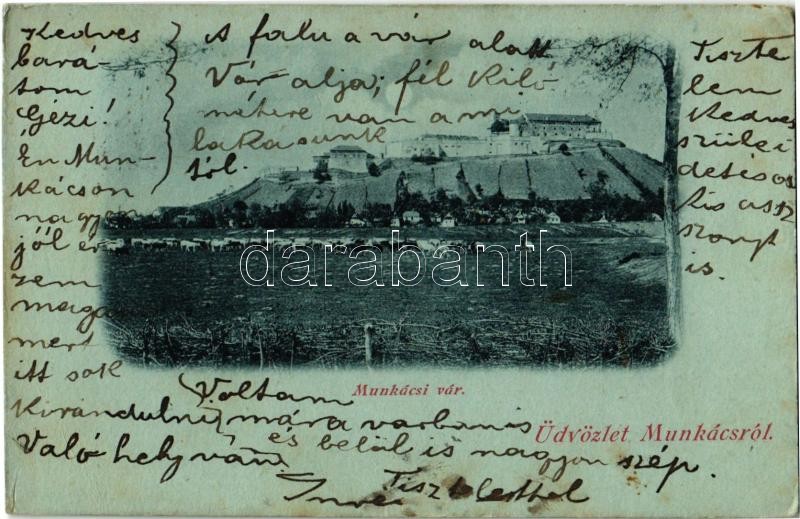 Kedves
bará-
tom
Gézi!
Én Mun-
kácson
nagyon
jól ér
zem
magam
mert
itt sok
Kirándulni
Való hely van.
A falu a vár alatt
Vár alja; fél Kilo
métere van a mi
lakásunk
tól.
Tiszte
lem
Kedves
szülei
det és a
kis assz
szonyt
is.
darabanth
Munkácsi vár.
Voltam
mára varban is
és belül is nagyon szép.
Üdvözlet Munkácsról.
Tisztelettel
Imre